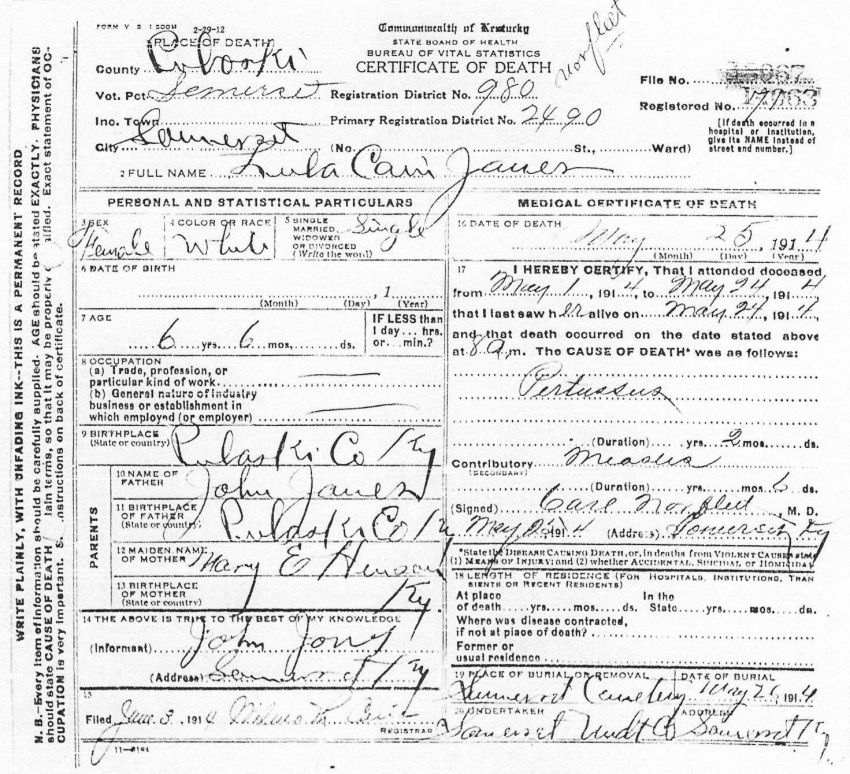 FORM V S 1 500M 2-29-12
Commonwealth of Kentucky
STATE BOARD OF HEALTH
BUREAU OF VITAL STATISTICS
CERTIFICATE OF DEATH
norfleet
PLACE OF DEATH
County Pulaski
Vot. Pct. Somerset Registration District No. 980
File No.
Registered No.
Inc. Town Primary Registration District No. 2490
City Somerset (No. St., Ward)
[If death occurred in a hospital or institution, give its NAME instead of street and number.]
2 FULL NAME Lula Cain Jones
PERSONAL AND STATISTICAL PARTICULARS
3 SEX Female
4 COLOR OR RACE White
5 SINGLE MARRIED, WIDOWED OR DIVORCED (Write the word) Single
6 DATE OF BIRTH
, 1
(Month) (Day) (Year)
7 AGE
6 yrs. 6 mos. ds.
IF LESS than 1 day... hrs. or... min.?
8 OCCUPATION
(a) Trade, profession, or particular kind of work
(b) General nature of industry business or establishment in which employed (or employer)
9 BIRTHPLACE (State or country) Pulaski Co Ky
PARENTS
10 NAME OF FATHER John Jones
11 BIRTHPLACE OF FATHER (State or country) Pulaski Co
12 MAIDEN NAME OF MOTHER Mary E
13 BIRTHPLACE OF MOTHER (State or country) Ky.
14 THE ABOVE IS TRUE TO THE BEST OF MY KNOWLEDGE
(Informant) John Jones
(Address) Somerset Ky
15
Filed June 3, 1914
REGISTRAR
11-6184
MEDICAL CERTIFICATE OF DEATH
16 DATE OF DEATH
May 25, 1914
(Month) (Day) (Year)
17 I HEREBY CERTIFY, That I attended deceased
from May 1, 1914, to May 24, 1914
that I last saw her alive on May 24, 1914,
and that death occurred on the date stated above
at 8 a.m. The CAUSE OF DEATH* was as follows:
Pertussus
(Duration) yrs. 2 mos. ds.
Contributory (SECONDARY) Measles
(Duration) yrs. mos. ds.
(Signed) Carl Norfleet, M. D.
May 1914 (Address) Somerset Ky
*State the DISEASE CAUSING DEATH, or, in deaths from VIOLENT CAUSES state
(1) MEANS OF INJURY; and (2) whether ACCIDENTAL, SUICIDAL OR HOMICIDAL
18 LENGTH OF RESIDENCE (FOR HOSPITALS, INSTITUTIONS, TRANSIENTS OR RECENT RESIDENTS)
At place of death yrs. mos. ds. In the State yrs. mos. ds.
Where was disease contracted, if not at place of death?
Former or usual residence
19 PLACE OF BURIAL OR REMOVAL Somerset Cemetery
DATE OF BURIAL May 1914
20 UNDERTAKER Somerset Undt Co
ADDRESS Somerset Ky
WRITE PLAINLY, WITH UNFADING INK--THIS IS A PERMANENT RECORD
N. B.--Every item of information should be carefully supplied. AGE should be stated EXACTLY. PHYSICIANS
should state CAUSE OF DEATH in terms, so that it may be properly Exact statement of OC-
CUPATION is very important. on back of certificate.